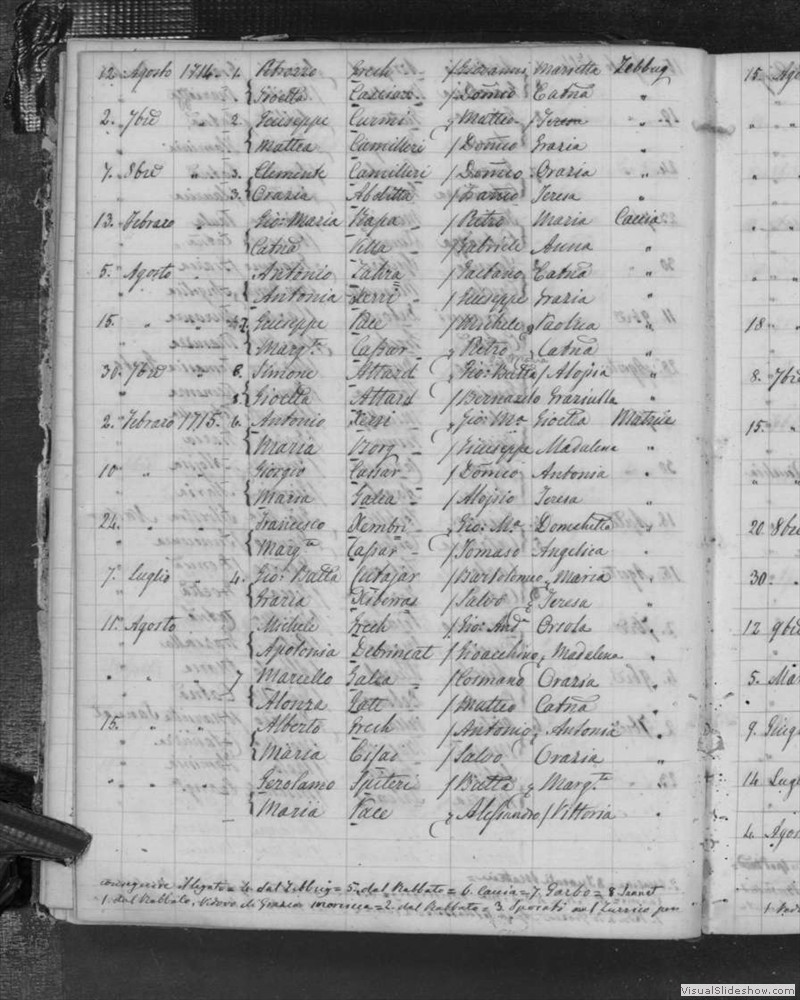 12. Agosto 1714. 1. Petrozzo Grech / Giovanni Marietta Zebbug
Gioetta / Domco Catna "
2. 7bre " 2. Giuseppe Curmi / Matteo / Teresa "
Mattea Camilleri / Domco Grazia "
7. 8bre " 3. Clemente Camilleri / Domco Orazia "
3. Orazia Abditta / Teresa "
13. Febraro " Gio: Maria Papa / Pietro Maria Caccia
Catna Vella / Gabriele Anna "
5. Agosto Antonio Zahra / Gaetano Catna "
" Antonia Xerri / Giuseppe Grazia "
15. " " 7. Giuseppe Pace / Michele Paolica "
Margta Cassar / Pietro Catna "
30. 7bre 8. Simone Attard Gio: Batta / Aloisia "
8. Gioetta Attard / Bernardo Graziulla
2. Febraro 1715. 6. Antonio Xerri Gio: Ma Gioetta Matrice
Maria Borg / Giuseppe Madalena "
10 " " Giorgio Cassar / Domco Antonia "
" Maria Galea / Aloisio Teresa "
24. " Francesco Xembri Gio: Ma Domenica "
Margta Cassar / Tomaso Angelica "
7. Luglio " 4. Gio: Batta Cutajar / Bartolomeo Maria "
" Grazia Xiberras / Salvo Teresa "
11. Agosto Michele Grech / Gio: And. Orsola "
Apolonia Debrincat / Gioacchino Madalena "
" " 7 Marcello Galea / Cosmano Orazia "
Alonza Gatt / Matteo Catna "
15. " " Alberto Grech / Antonio Antonia "
Maria / Salvo Orazia "
" " Gerolamo Spiteri / Batta Margta "
" Maria Pace Alessandro / Vittoria "
= 4. dal Zebbug = 5. dal Rabbato = 6. Caccia = 7. Garbo = 8
1 dal Rabbato, Vedovo di Grazia = 2. dal Rabbato = 3.
15. Ago
18 "
8. 7bre
15. "
20 8bre
30. "
12 9bre
5. Mar
9. Giug
14 Lug
4. Agos
VisualSlideshow.com